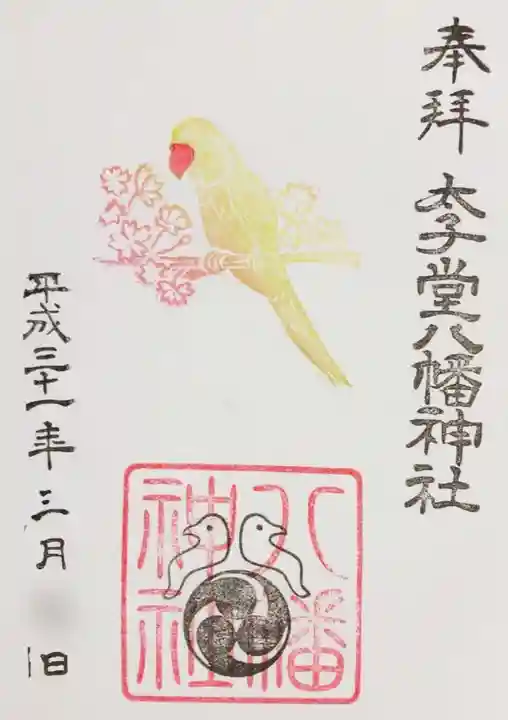 奉拝
太子堂八幡神社
八幡
神社
平成三十一年三月 日